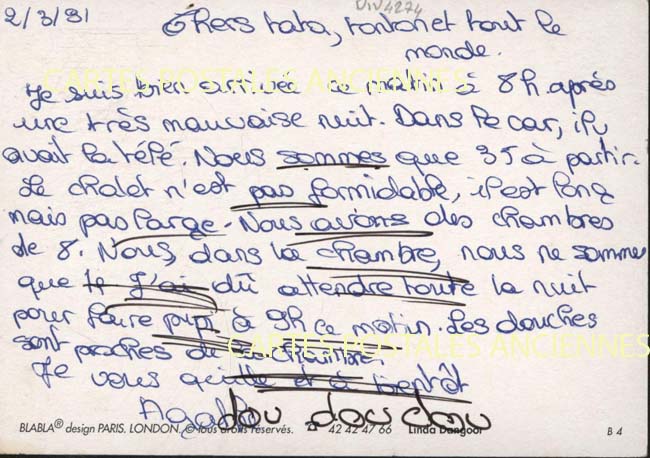 2/3/91
VIV4274
Chers tata, tonton et tout le
monde.
CARTES POSTALES ANCIENNES
Je suis bien arrivée ce matin à 8h après
une très mauvaise nuit. Dans le car, il y
avait la télé. Nous sommes que 35 à partir.
Le chalet n'est pas formidable, il est long
mais pas large. Nous avions des chambres
de 8. Nous, dans la chambre, nous ne sommes
que J'ai dû attendre toute la nuit
pour faire pipi à 9h ce matin. Les douches
sont proches de
CARTES POSTALES ANCIENNES
Je vous quitte et à bientôt
dou dou dou
BLABLA® design PARIS. LONDON. © tous droits réservés. 42 42 47 66 Linda Dangoor B 4